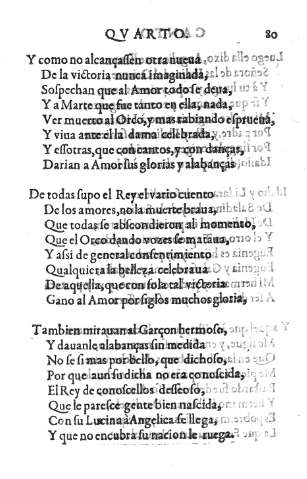 QVARTO. 80
Y como no alcançassen otra nueua
De la victoria nunca imaginada,
Sospechan que al Amor todo se deua,
Y a Marte que fue tanto en ella, nada,
Ver muerto al Orco, y mas rabiando es prueua,
Y viua ante el la dama celebrada,
Y essotras, que con cantos, y con danças,
Darian a Amor sus glorias y alabanças
De todas supo el Rey el vario cuento
De los amores, no la muerte braua,
Que todas se abscondieron al momento,
Que el Orco dando vozes se mataua,
Y assi de general consentimiento
Qualquiera la belleza celebraua
De aquella, que con sola tal victoria
Gano al Amor por siglos muchos gloria,
Tambien mirauan al Garçon hermoso,
Y dauanle alabanças sin medida
No se si mas por bello, que dichoso,
Por que aun su dicha no era conoscida,
El Rey de conoscellos desseoso,
Que le paresce gente bien nascida,
Con su Lucina à Angelica se llega,
Y que no encubra su nacion le ruega.